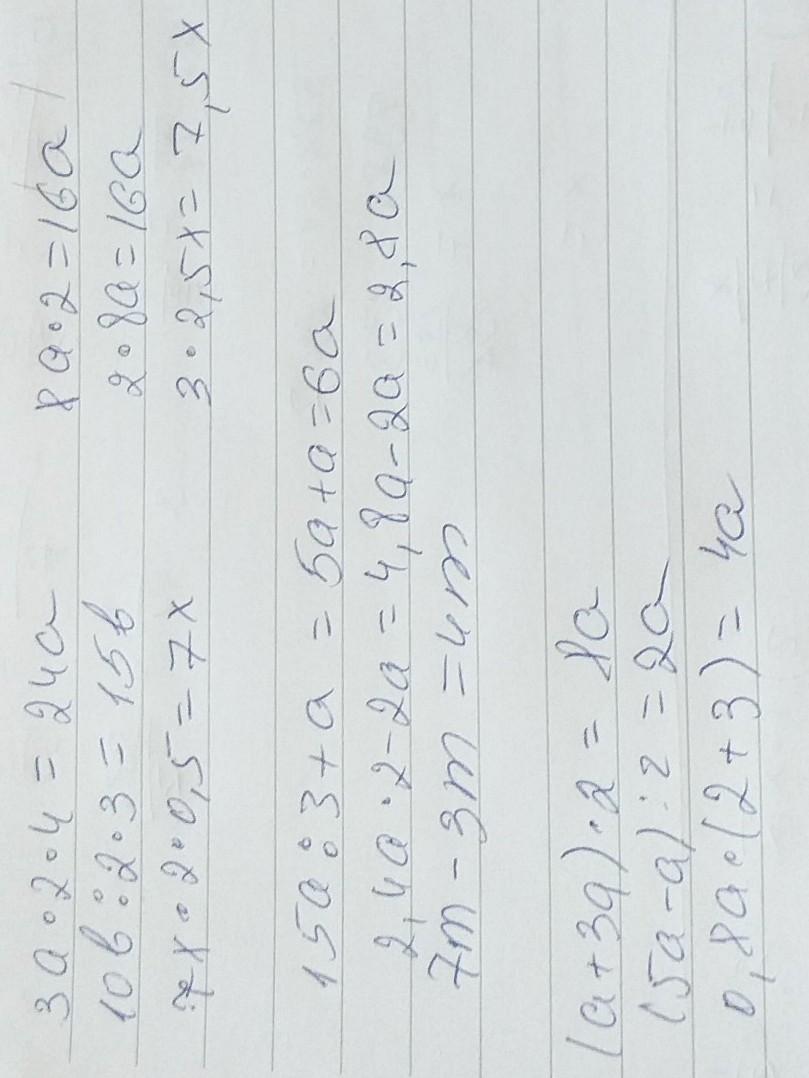 3a·2·4 = 24a 8a·2=16a
10b:2·3 = 15b 2·8a=16a
7x·2·0,5=7x 3·2,5x=7,5x
15a:3+a = 5a+a=6a
2,4a·2-2a=4,8a-2a=2,8a
7m-3m=4m
(a+3a)·2= 8a
(5a-a):2=2a
0,8a·(2+3)= 4a